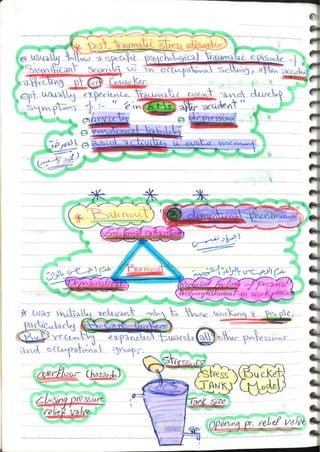 * Post traumatic stress disorder
usually follow a specific psychological traumatic episode of
significant severity in occupational setting, often accident
affecting pt or coworker
pt. usually experience traumatic event and develop
symptoms of :- "è in 6 ms after accident"
anxiety depression
emotional lability
avoid activities è evoke memory
* Burnout 3 dimensional phenomenon
Emotional exhaustion
Burnout
Reduced feeling of personal
accomplishment in workplace
* was initially relevant only to those working è people,
particularly
But recently expanded towards all other professions
and occupational groups
Stressors
overflow (hazards)
STRESS TANK
Bucket Model
closing pressure
relief valve
Tank size
opening pr. relief valve